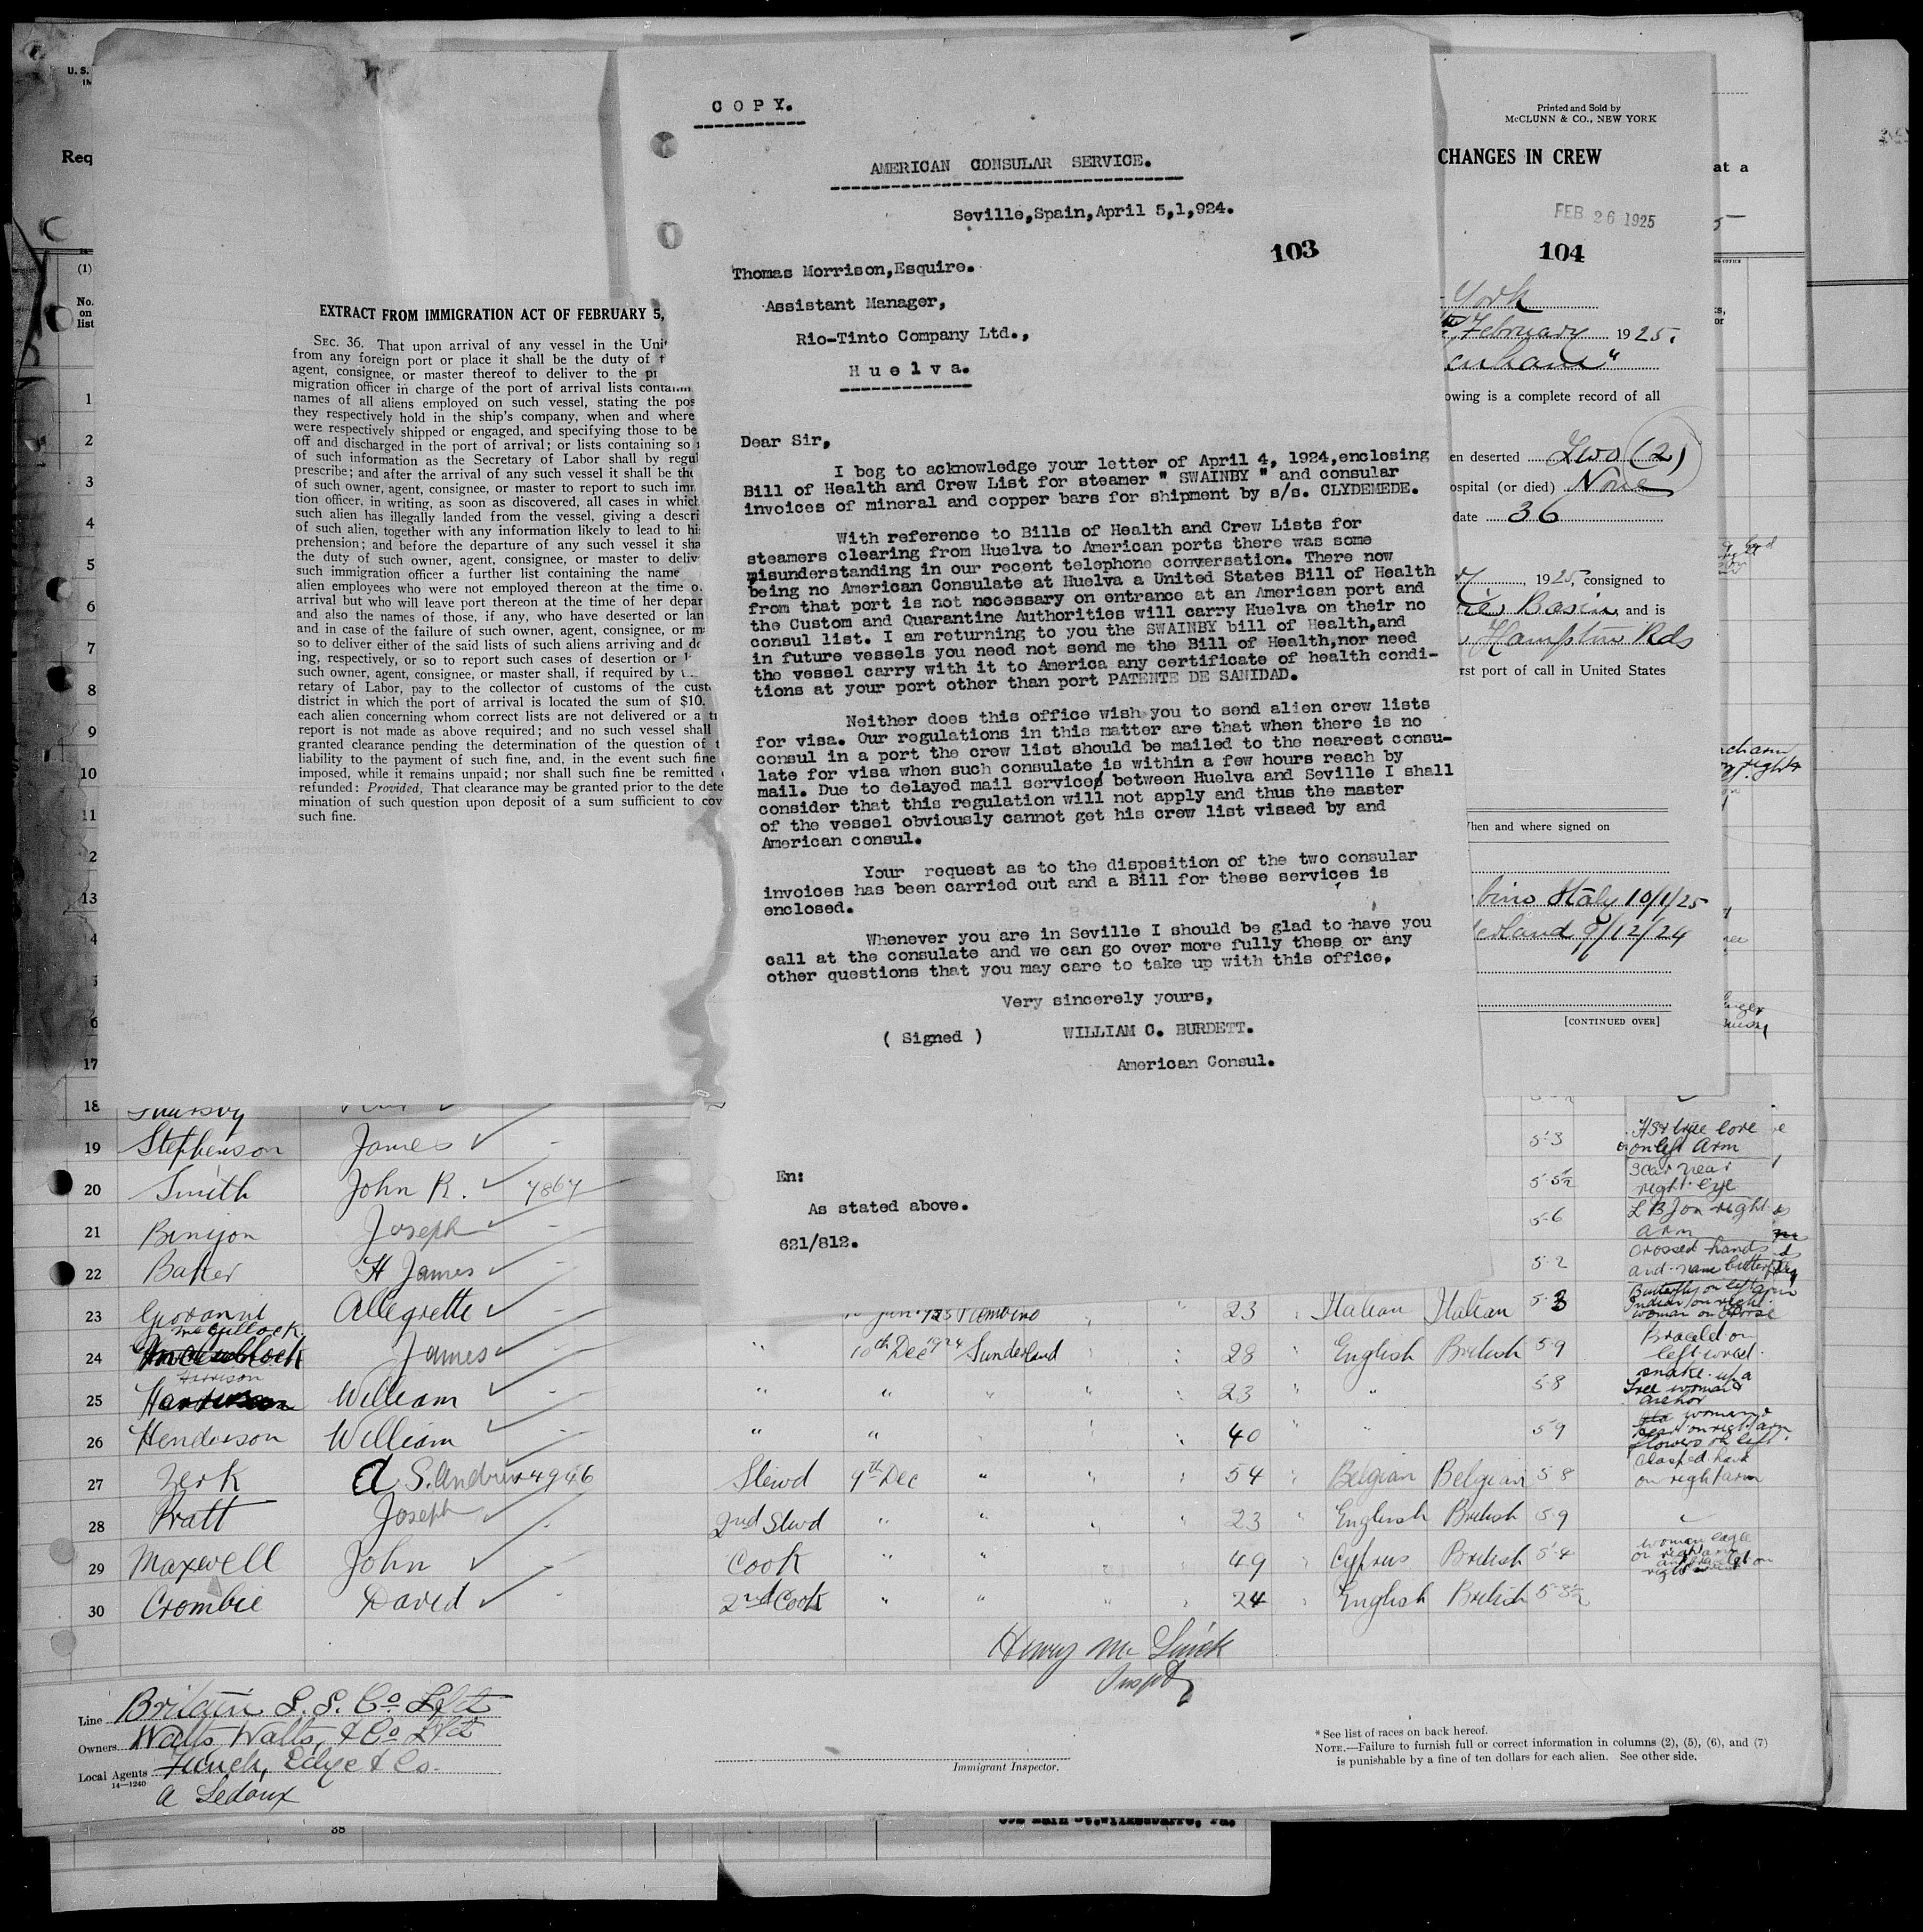 U. S.
Req
(1)
No.
on
list
EXTRACT FROM IMMIGRATION ACT OF FEBRUARY 5,
SEC. 36. That upon arrival of any vessel in the
from any foreign port or place it shall be the duty of
agent, consignee, or master thereof to deliver to the
migration officer in charge of the port of arrival lists
names of all aliens employed on such vessel, stating the
they respectively hold in the ship's company, when and where
were respectively shipped or engaged, and specifying those to be
off and discharged in the port of arrival; or lists containing so
of such information as the Secretary of Labor shall by
prescribe; and after the arrival of any such vessel it shall be
of such owner, agent, consignee, or master to report to such
tion officer, in writing, as soon as discovered, all cases in
such alien has illegally landed from the vessel, giving a
of such alien, together with any information likely to lead to
prehension; and before the departure of any such vessel it
the duty of such owner, agent, consignee, or master to
such immigration officer a further list containing the name
alien employees who were not employed thereon at the time
arrival but who will leave port thereon at the time of her
and also the names of those, if any, who have deserted or
and in case of the failure of such owner, agent, consignee, or
so to deliver either of the said lists of such aliens arriving and
ing, respectively, or so to report such cases of desertion or
such owner, agent, consignee, or master shall, if required by
retary of Labor, pay to the collector of customs of the
district in which the port of arrival is located the sum of $10.
each alien concerning whom correct lists are not delivered or a
report is not made as above required; and no such vessel shall
granted clearance pending the determination of the question of
liability to the payment of such fine, and, in the event such fine
imposed, while it remains unpaid; nor shall such fine be remitted
refunded: Provided, That clearance may be granted prior to the
mination of such question upon deposit of a sum sufficient to
such fine.
COPY.
AMERICAN CONSULAR SERVICE.
Seville,Spain,April 5,1,924.
103
Thomas Morrison,Esquire.
Assistant Manager,
Rio-Tinto Company Ltd.,
Huelva.
Dear Sir,
I beg to acknowledge your letter of April 4, 1924,enclosing
Bill of Health and Crew List for steamer " SWAINBY " and consular
invoices of mineral and copper bars for shipment by s/s. CLYDEMEDE.
With reference to Bills of Health and Crew Lists for
steamers clearing from Huelva to American ports there was some
misunderstanding in our recent telephone conversation. There now
being no American Consulate at Huelva a United States Bill of Health
from that port is not necessary on entrance at an American port and
the Custom and Quarantine Authorities will carry Huelva on their no
consul list. I am returning to you the SWAINBY bill of Health,and
in future vessels you need not send me the Bill of Health,nor need
the vessel carry with it to America any certificate of health condi-
tions at your port other than port PATENTE DE SANIDAD.
Neither does this office wish you to send alien crew lists
for visa. Our regulations in this matter are that when there is no
consul in a port the crew list should be mailed to the nearest consu-
late for visa when such consulate is within a few hours reach by
mail. Due to delayed mail services between Huelva and Seville I shall
consider that this regulation will not apply and thus the master
of the vessel obviously cannot get his crew list visaed by and
American consul.
Your request as to the disposition of the two consular
invoices has been carried out and a Bill for these services is
enclosed.
Whenever you are in Seville I should be glad to have you
call at the consulate and we can go over more fully these or any
other questions that you may care to take up with this office.
Very sincerely yours,
( Signed ) WILLIAM C. BURDETT.
American Consul.
En:
As stated above.
621/812.
Printed and Sold by
McCLUNN & CO., NEW YORK
CHANGES IN CREW
at a
FEB 26 1925
104
York
February 1925.
owing is a complete record of all
en deserted Two (2)
ospital (or died) None
date 36
1925, consigned to
Basin and is
Hampton Rds
rst port of call in United States
hen and where signed on
bino Italy 10/1/25
erland 9/12/24
[CONTINUED OVER]
1
2
3
4
5
6
7
8
9
10
11
13
17
18
19 Stephenson James - 5-3 true love on left arm
20 Smith John R. 7867 5-5½ scar near right eye
21 Binijon Joseph 5-6 L B J on right arm
22 Baker H James - 5-2 crossed hands and name butterfly
23 Giovanni Allegrette - Piombino " 23 " Italian Italian 5-3 Butterfly on left arm Indian on right woman on horse
24 McCullock James - " 10th Dec 1924 Sunderland 28 " English British 5-9 Bracelet on left wrist
25 Harrison William - " " " " 23 " " 5-8 snake up a tree woman & anchor
26 Henderson William - " " 40 5-9 woman & on right arm flowers on left
27 Zerk A S. Andrew 4946 Stewd 9th Dec " " 54 " Belgian Belgian 5-8 Clasped hands on right arm
28 Pratt Joseph - 2nd Stewd " " " 23 " English British 5-9
29 Maxwell John - Cook " " 49 " Cyprus British 5-4 woman eagle on right arm
30 Crombie David - 2nd Cook " " " 24 " English British 5-3½
Henry Mc
Inspt
Line Britain S. S. Co Ltd
Owners Watts, Watts, & Co Ltd
Local Agents Funch, Edye & Co.
14—1240
A Ledoux
Immigrant Inspector.
* See list of races on back hereof.
NOTE.—Failure to furnish full or correct information in columns (2), (5), (6), and (7)
is punishable by a fine of ten dollars for each alien. See other side.
38